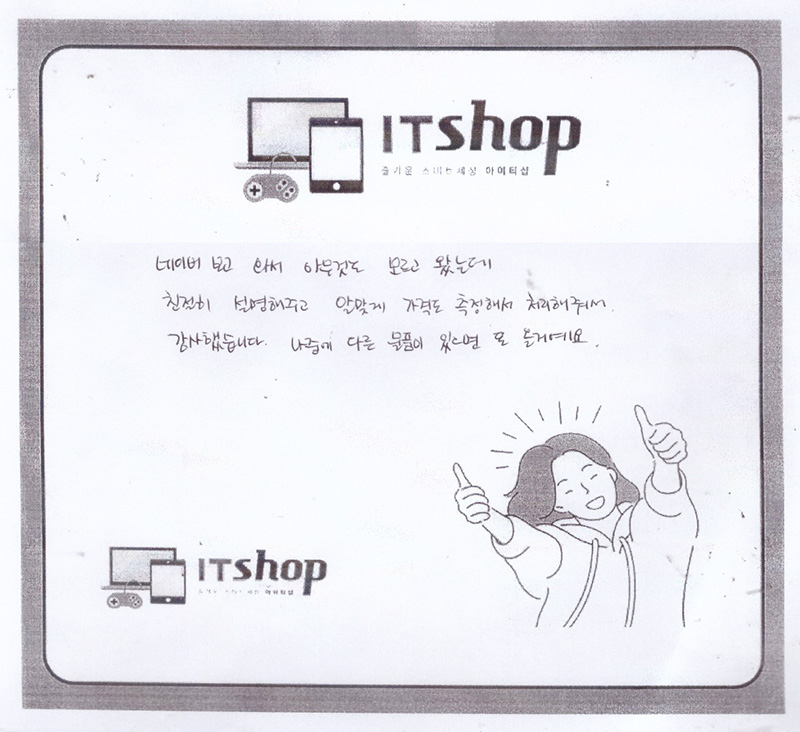 ITshop
즐거운 스마트세상 아이티샵
네이버 보고 와서 아무것도 모르고 왔는데
친전히 설명해주고 알맞게 가격도 측정해서 처리해줘서.
감사했습니다. 나중에 다른 물품이 있으면 또 올거예요.
ITshop
아이티샵